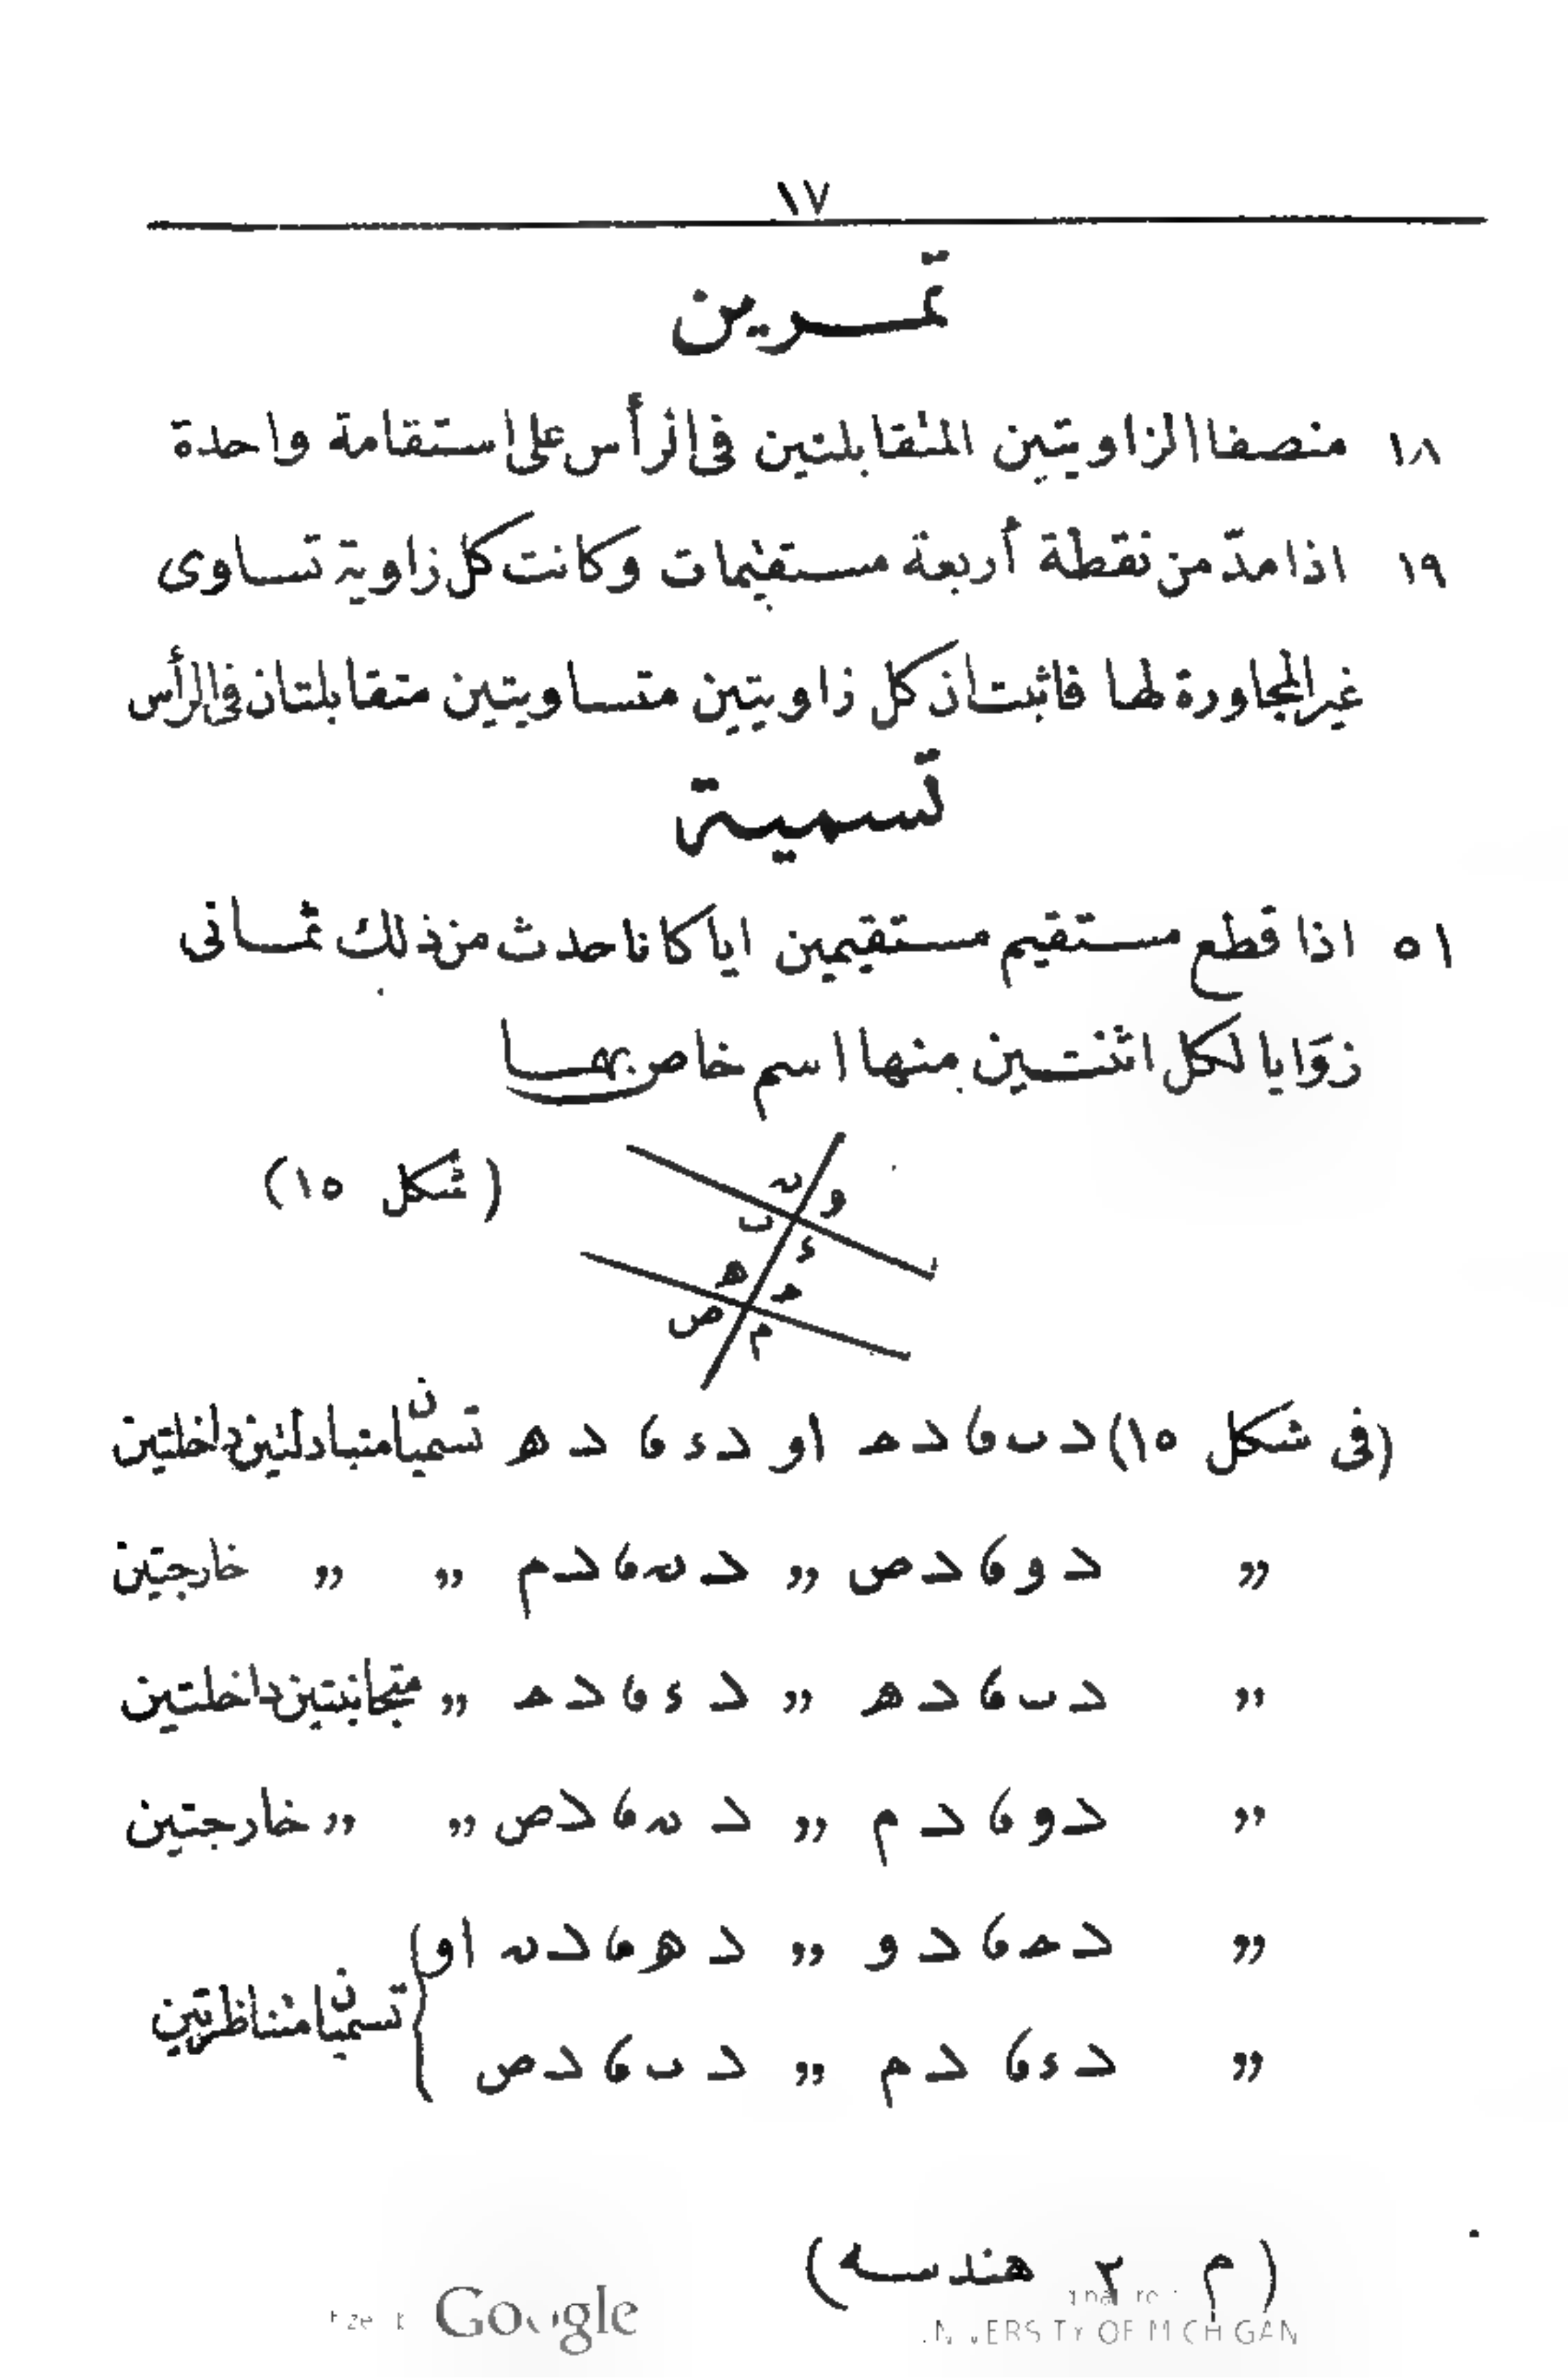 ١٧
تمرين
١٨ منصفا الزاويتين المتقابلتين فى الرأس على استقامة واحدة
١٩ اذا مدّ من نقطة أربعة مستقيمات وكانت كل زاوية تساوى
غير المجاورة لها فاثبت ان كل زاويتين متساويتين متقابلتان فى الرأس
تسمية
٥١ اذا قطع مستقيم مستقيمين ايا كانا حدث من ذلك ثمانى
زوايا لكل اثنتين منها اسم خاص بهما
(شكل ١٥)
ن و
ب ء
ه ح
ص م
(فى شكل ١٥) د ب ، د ح او د ء ، د ه تسميان متبادلتين داخلتين
„ د و ، د ص „ د ن ، د م „ „ خارجتين
„ د ب ، د ه „ د ء ، د ح „ متجانبتين داخلتين
„ د و ، د م „ د ن ، د ص „ „ خارجتين
„ د ح ، د و „ د ه ، د ن او
تسميان متناظرتين
„ د ء ، د م „ د ب ، د ص
(م ٢ هندسه)
Google
UNIVERSITY OF MICHIGAN